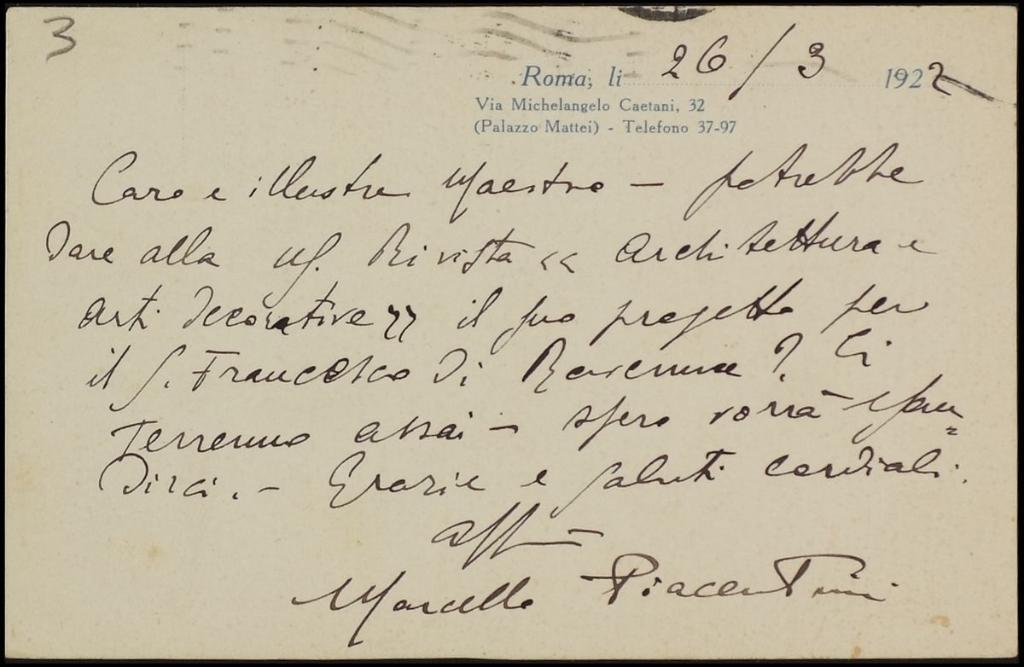 3
Roma, li 26/3 1922
Via Michelangelo Caetani, 32
(Palazzo Mattei) - Telefono 37-97
Caro e illustre Maestro — potrebbe
dare alla ns. Rivista << Architettura e
arti decorative >> il suo progetto per
il S. Francesco di Ravenna? Ci
terremmo assai — spero vorrà esau=
dirci. — Grazie e saluti cordiali.
aff
Marcello Piacentini